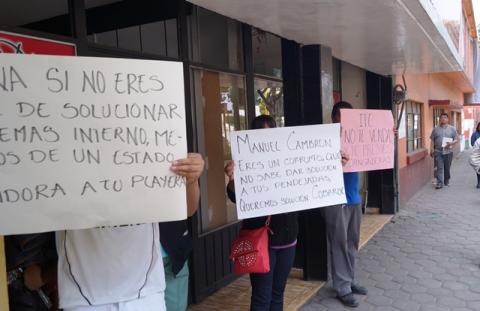 NA SI NO ERES
Z DE SOLUCIONAR
EMAS INTERNO, ME-
OS DE UN ESTADO
IDORA A TU PLAYERA
MANUEL CAMBRON
ERES UN CORRUPTO QUE
NO SABE DAR SOLUCIÓN
A TUS PENDEJADAS
QUEREMOS SOLUCIÓN COBARDE
ITC
NO A VENDA
DE